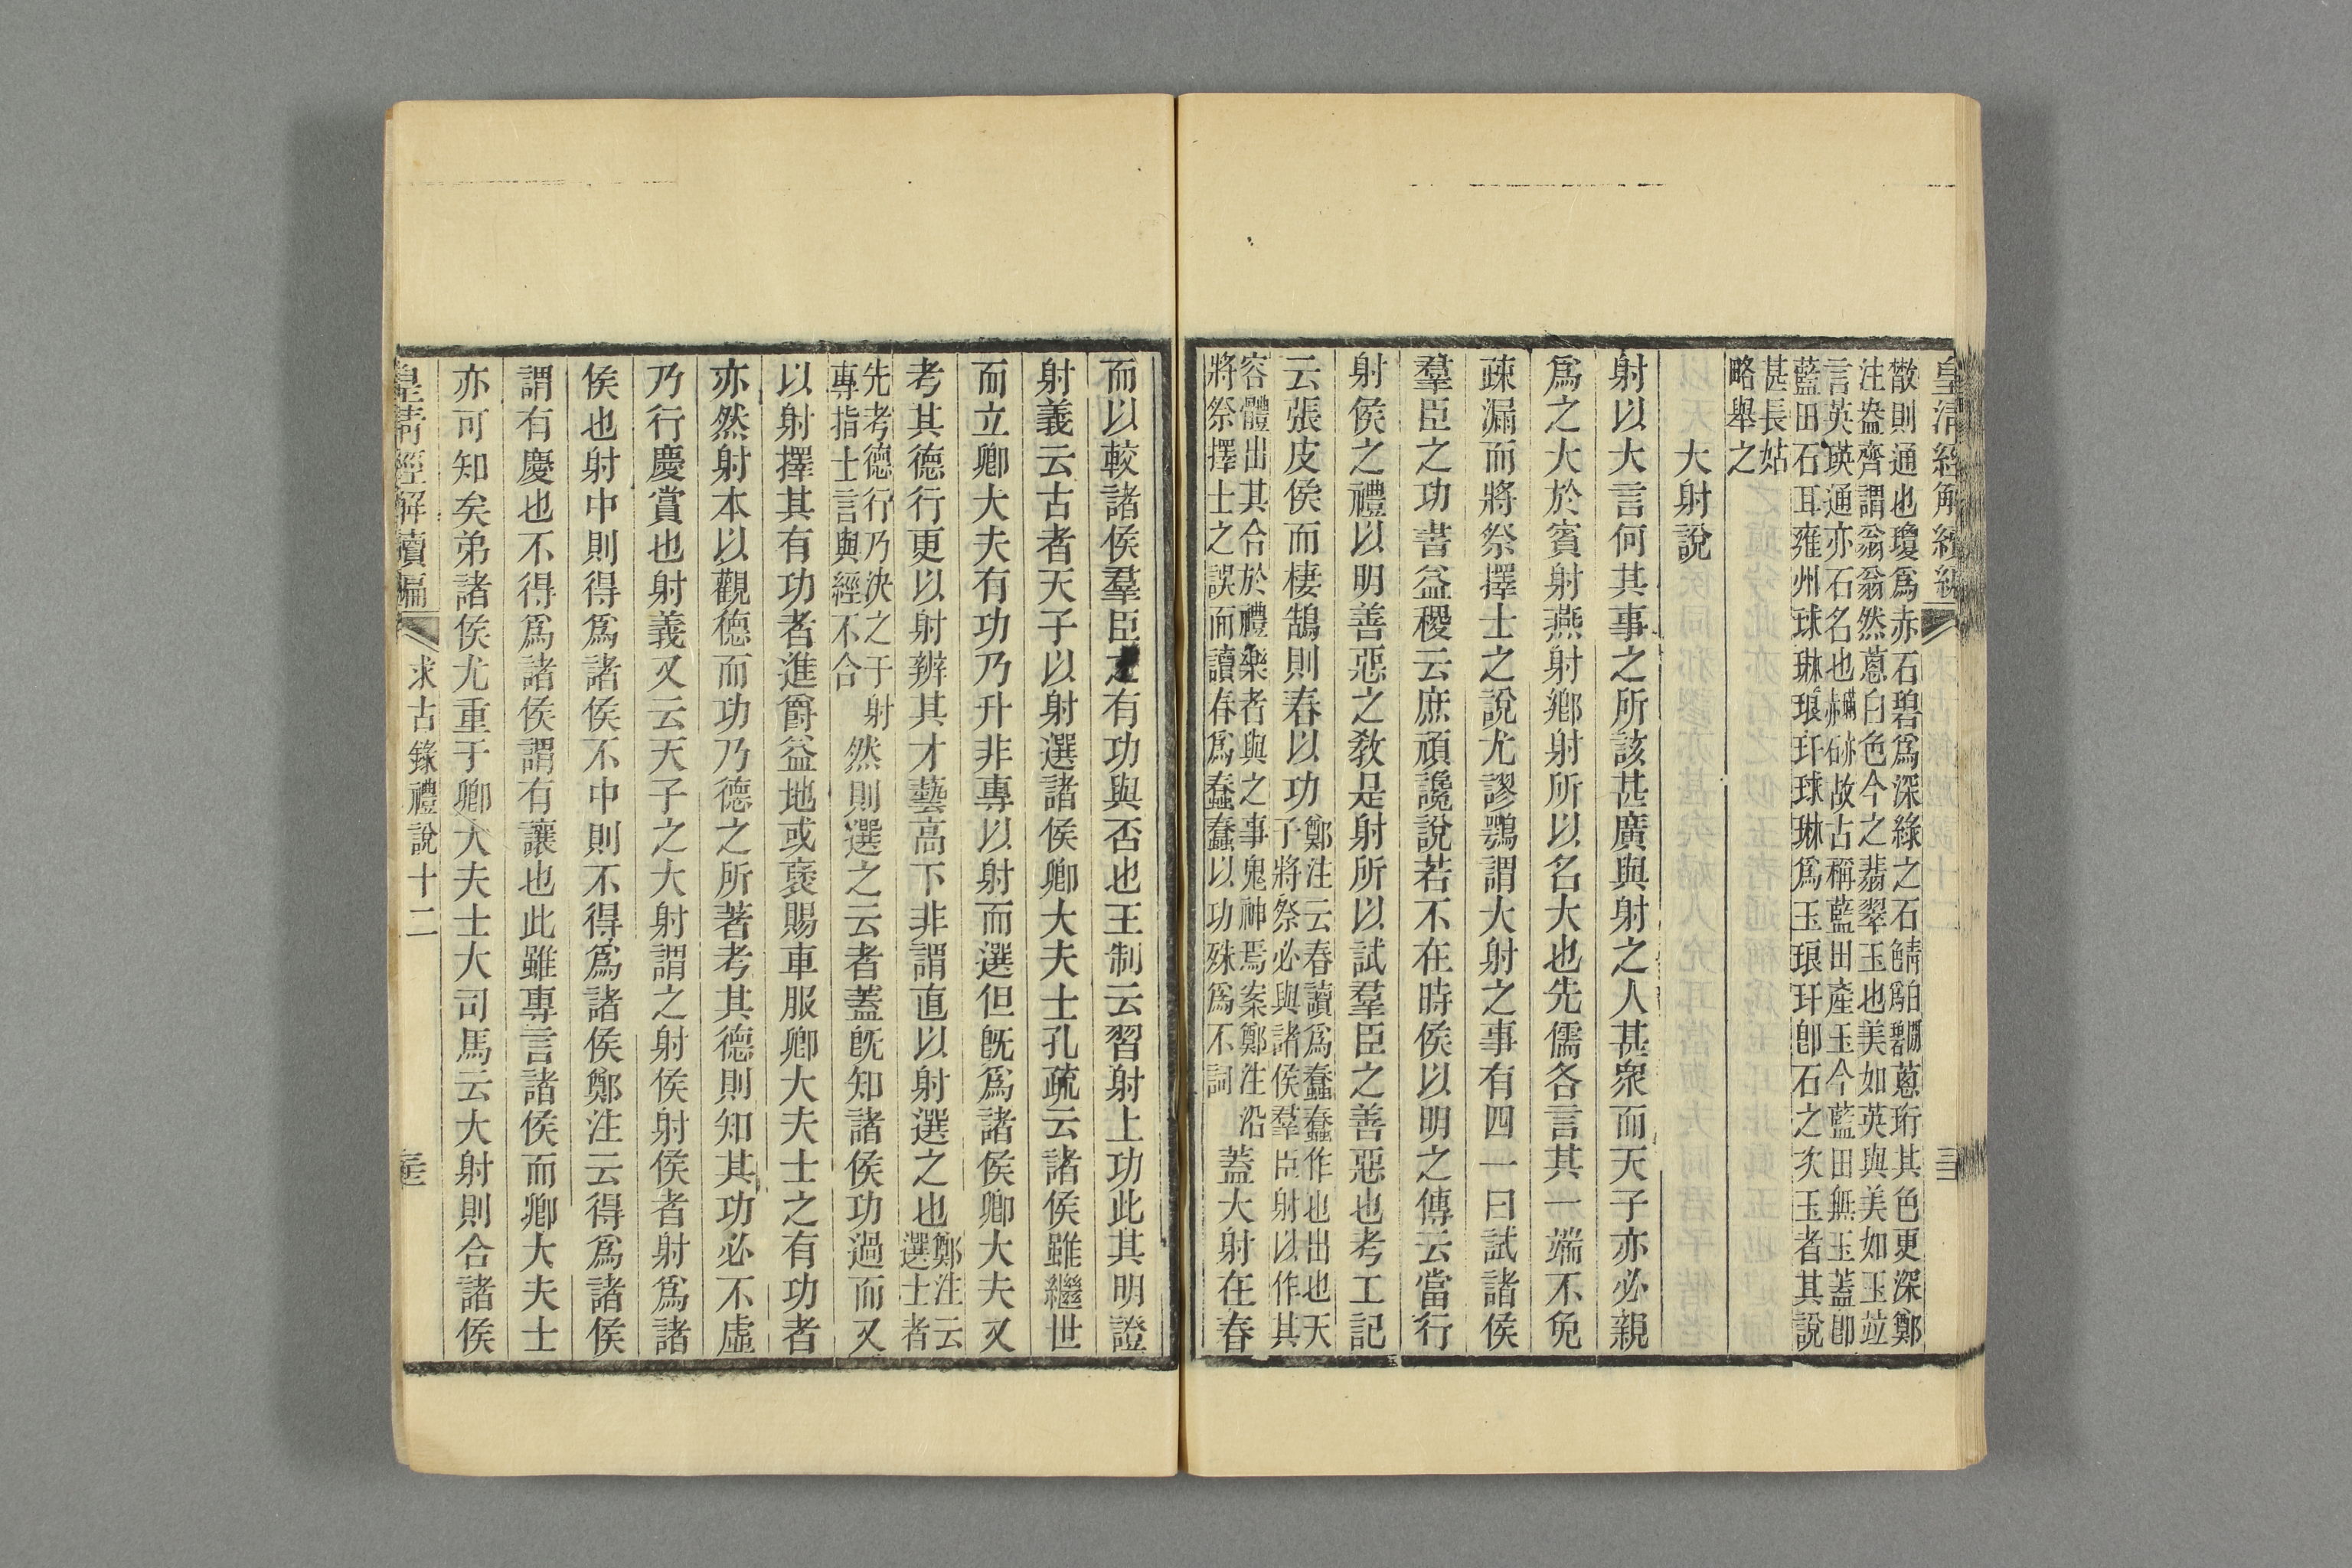 皇清經解續編
散則通也瓊爲赤石碧爲深綠之石蔥珩其色更深鄭
注盎齊謂翁翁然蔥白色今之翡翠玉也美如英與美如玉竝
言英瑛通亦石名也故古稱藍田產玉今藍田無玉蓋卽
藍田石耳雍州球琳琅玕球琳爲玉琅玕卽石之次玉者其說
甚長姑
略舉之
大射說
射以大言何其事之所該甚廣與射之人甚衆而天子亦必親
爲之大於賓射燕射鄉射所以名大也先儒各言其一端不免
疎漏而將祭擇士之說尤謬鶚謂大射之事有四一曰試諸侯
羣臣之功書益稷云庶頑讒說若不在時侯以明之傳云當行
射侯之禮以明善惡之敎是射所以試羣臣之善惡也考工記
云張皮侯而棲鵠則春以功鄭注云春讀爲蠢蠢作也出也天
子將祭必與諸侯羣臣射以作其
容體出其合於禮樂者與之事鬼神焉案鄭注沿
將祭擇士之誤而讀春爲蠢蠢以功殊爲不詞蓋大射在春
而以較諸侯羣臣之有功與否也王制云習射上功此其明證
射義云古者天子以射選諸侯卿大夫士孔疏云諸侯雖繼世
而立卿大夫有功乃升非專以射而選但旣爲諸侯卿大夫又
考其德行更以射辨其才藝高下非謂直以射選之也鄭注云
選士者
先考德行乃決之于射
專指士言與經不合然則選之云者蓋旣知諸侯功過而又
以射擇其有功者進爵益地或褒賜車服卿大夫士之有功者
亦然射本以觀德而功乃德之所著考其德則知其功必不虛
乃行慶賞也射義又云天子之大射謂之射侯射侯者射爲諸
侯也射中則得爲諸侯不中則不得爲諸侯鄭注云得爲諸侯
謂有慶也不得爲諸侯謂有讓也此雖專言諸侯而卿大夫士
亦可知矣弟諸侯尤重于卿大夫士大司馬云大射則合諸侯
皇淸經解續編 求古錄禮說十二